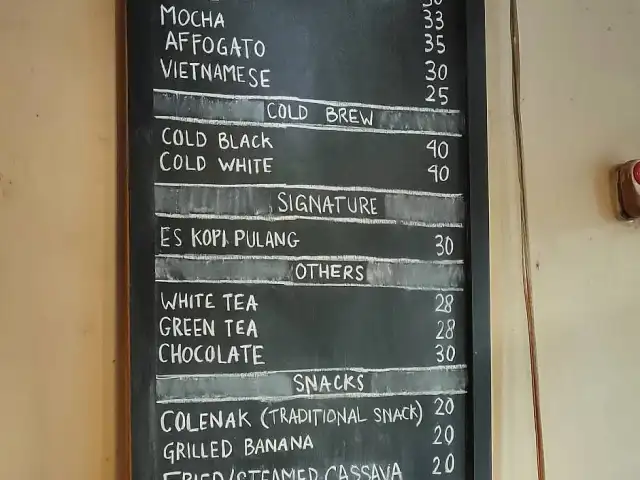 MOCHA 33
AFFOGATO 35
VIETNAMESE 30
25
COLD BREW
COLD BLACK 40
COLD WHITE 40
SIGNATURE
ES KOPI PULANG 30
OTHERS
WHITE TEA 28
GREEN TEA 28
CHOCOLATE 30
SNACKS
COLENAK (TRADITIONAL SNACK) 20
GRILLED BANANA 20
FRIED/STEAMED CASSAVA 20